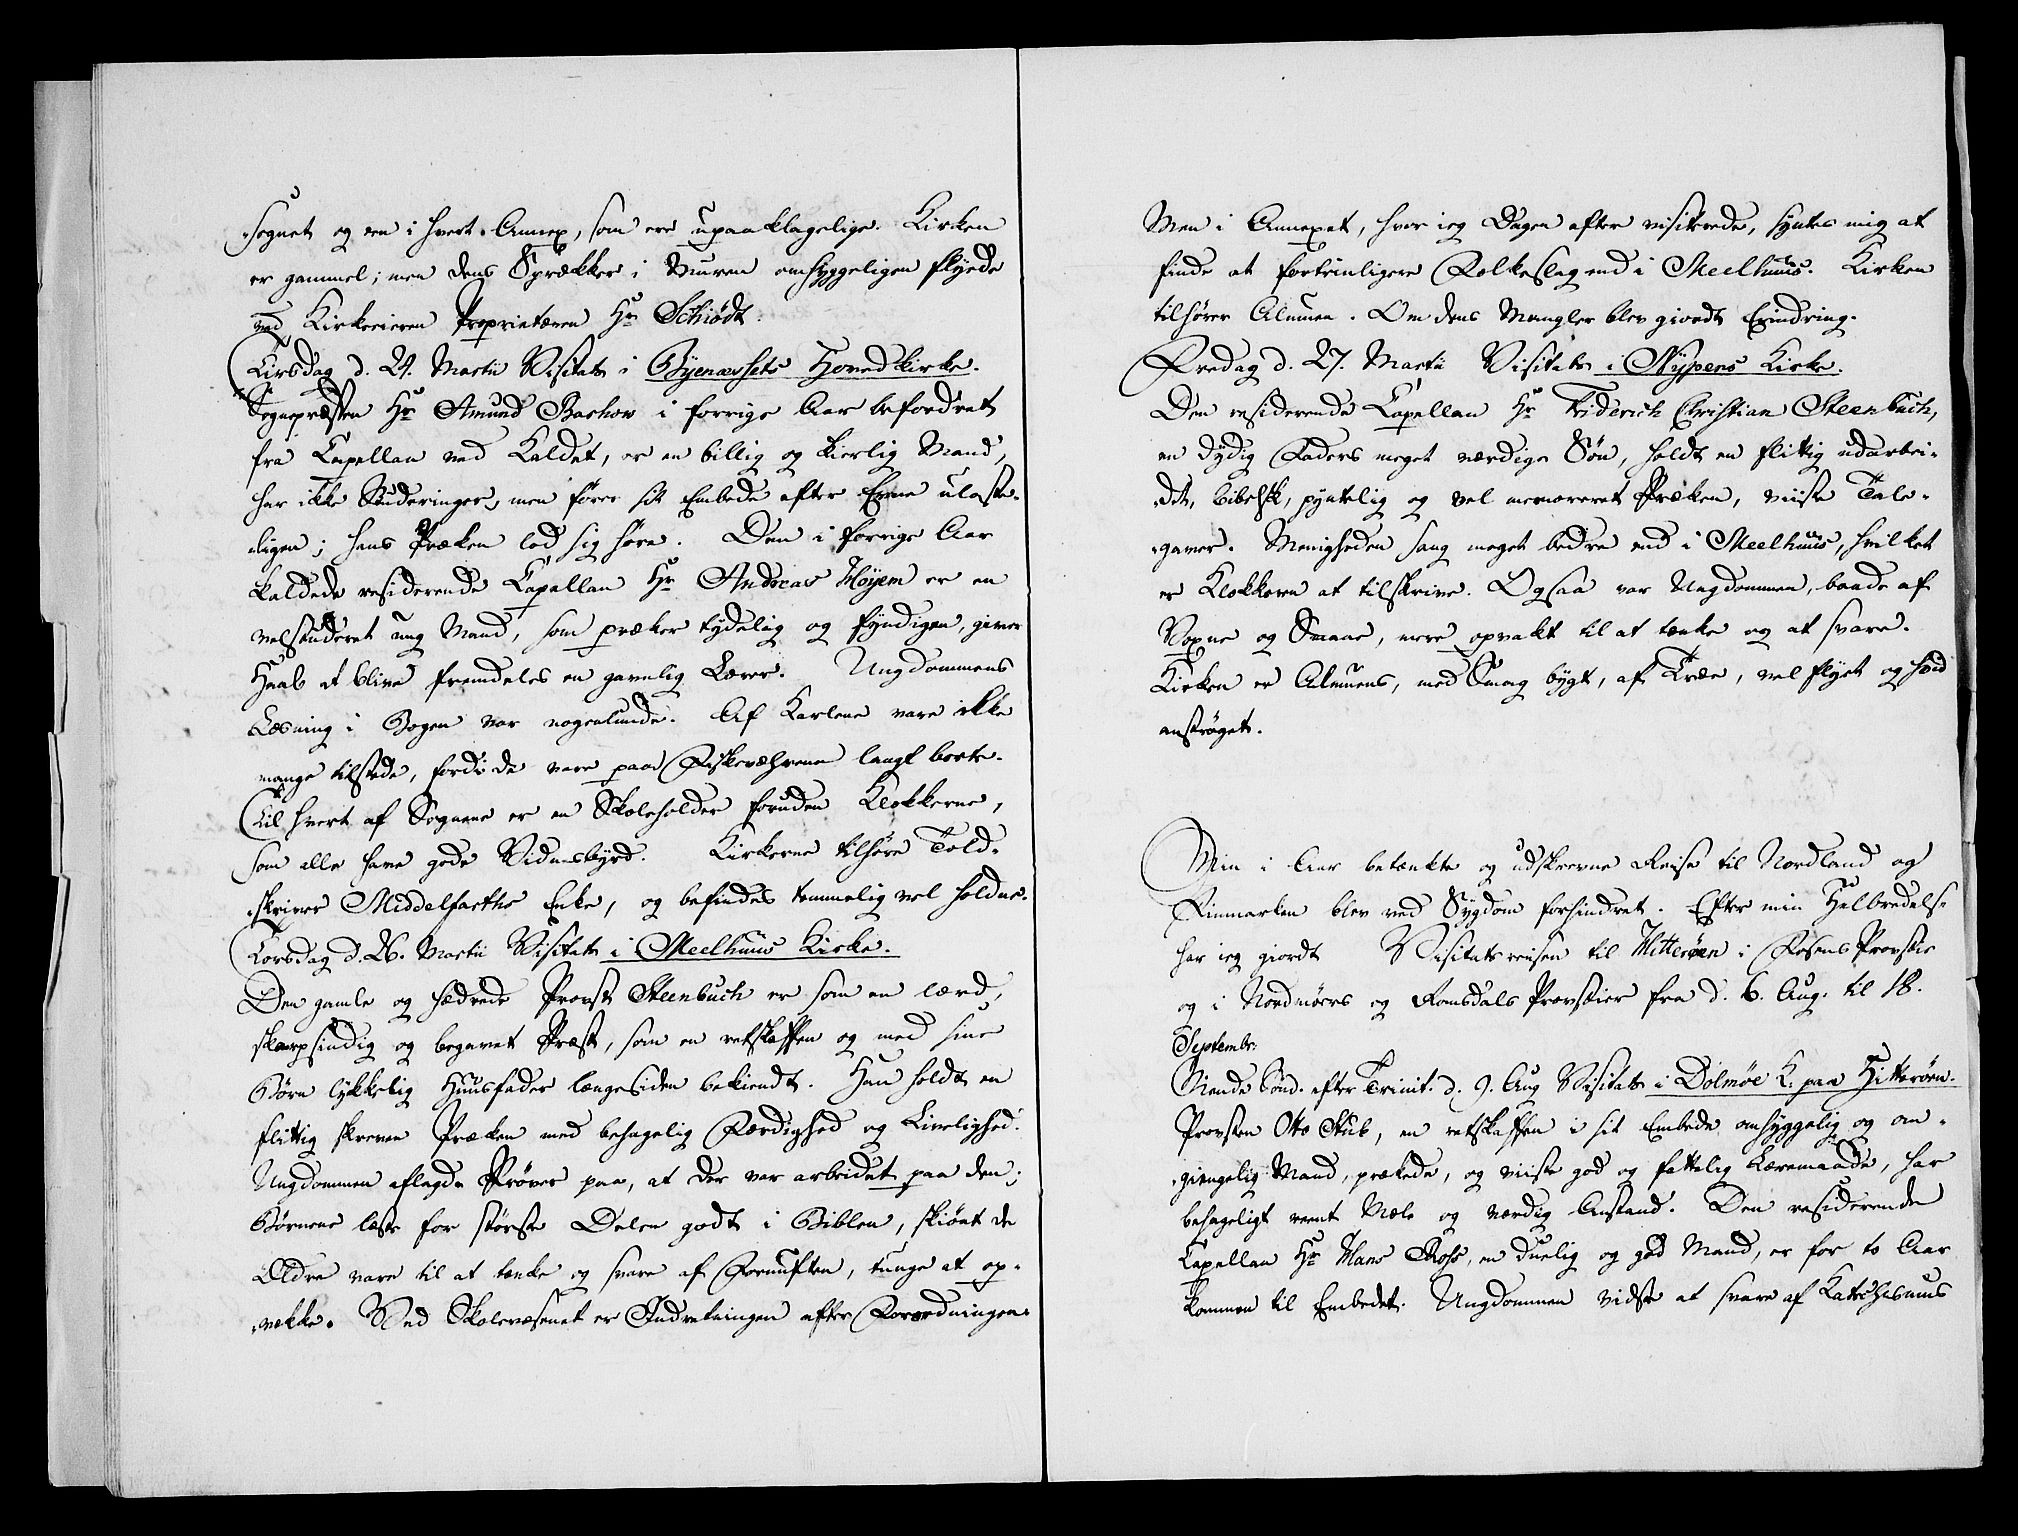 Sognet og een i hvert Annex, som ere upaaklagelige. Kirken
er gammel; men dens Sprækker i Muren omhyggeligen flyede
ved Kirkeeieren Proprietæren Hr Schiødt.
Tirsdag d. 24. Martii Visitats i Byenæssets Hovedkirke.
Sognepræsten Hr Amund Bachow i forrige Aar befordret
fra Capellan ved Kaldet, er en billig og kierlig Mand,
har ikke Studeringer, men fører sit Embede efter Evne ulaste-
ligen; hans Præken lod sig høre. Den i forrige Aar
kaldede residerende Capellan Hr Andreas Høyem er en
velstuderet ung Mand, som præker tydelig og fyndigen, giver
Haab at blive fremdeles en gavnlig Lærer. Ungdommens
Læsning i Bogen var nogenlunde. Af Karlene vare ikke
mange tilstede, fordi de vare paa Fiskeværene langt borte.
Til hvert af Sognene er en Skoleholder foruden Klokkerne,
som alle have gode Vidnesbyrd. Kirkerne tilhøre Told-
skriver Middelfarths Enke, og befindes temmelig vel holdne.
Torsdag d. 26. Martii Visitats i Meelhuus Kirke.
Den gamle og hædrede Provst Steenbuch er som en lærd,
skarpsindig og begavet Præst, som en retskaffen og med sine
Børn lykkelig Huusfader længesiden bekiendt. Han holdt en
flittig skreven Præken med behagelig Færdighed og Livelighed.
Ungdommen aflagde Prøver paa, at der var arbeidet paa den;
Børnene læste for største Delen godt i Biblen, skiønt de
Ældre vare til at tænke og svare af Fornuften, tunge at op-
vække. Ved Skolevæsenet er Indretningen efter Forordningen.
Men i Annexet, hvor jeg Dagen efter visiterede, syntes mig at
finde et fortrinligere Folkeslag end i Meelhuus. Kirken
tilhører Almuen. Om dens Mangler blev giordt Erindring.
Fredag d. 27. Martii Visitats i Nypens Kirke.
Den residerende Capellan Hr Friderich Christian Steenbuch,
en dydig Faders meget værdige Søn, holdt en flittig udarbei-
det, bibelsk, pyntelig og vel memoreret Præken, viiste Tale-
gaver. Menigheden sang meget bedre end i Meelhuus, hvilket
er Klokkeren at tilskrive. Ogsaa var Ungdommen, baade af
Voxne og Smaae, mere opvakt til at tænke og at svare.
Kirken er Almuens, med Smag bygt, af Træe, vel flyet og hvid
anstrøget.
Min i Aar betænkte og udskrevne Reise til Nordland og
Finmarken blev ved Sygdom forhindret. Efter min Helbredelse
har jeg giordt Visitatsreisen til Hitterøen i Fosens Provstie
og i Nordmøers og Romsdals Provstier fra d. 6. Aug. til 18.
Septembr:
Niende Sønd. efter Trinit. d. 9. Aug Visitats i Dolmøe K. paa Hitterøen.
Provsten Otto Stub, en retskaffen i sit Embede omhyggelig og om-
giengelig Mand, prækede, og viiste god og fattelig Læremaade, har
behageligt reent Mæle og værdig Anstand. Den residerende
Capellan Hr Hans Ross, en duelig og god Mand, er for to Aar
kommen til Embedet. Ungdommen vidste at svare af Katechismus